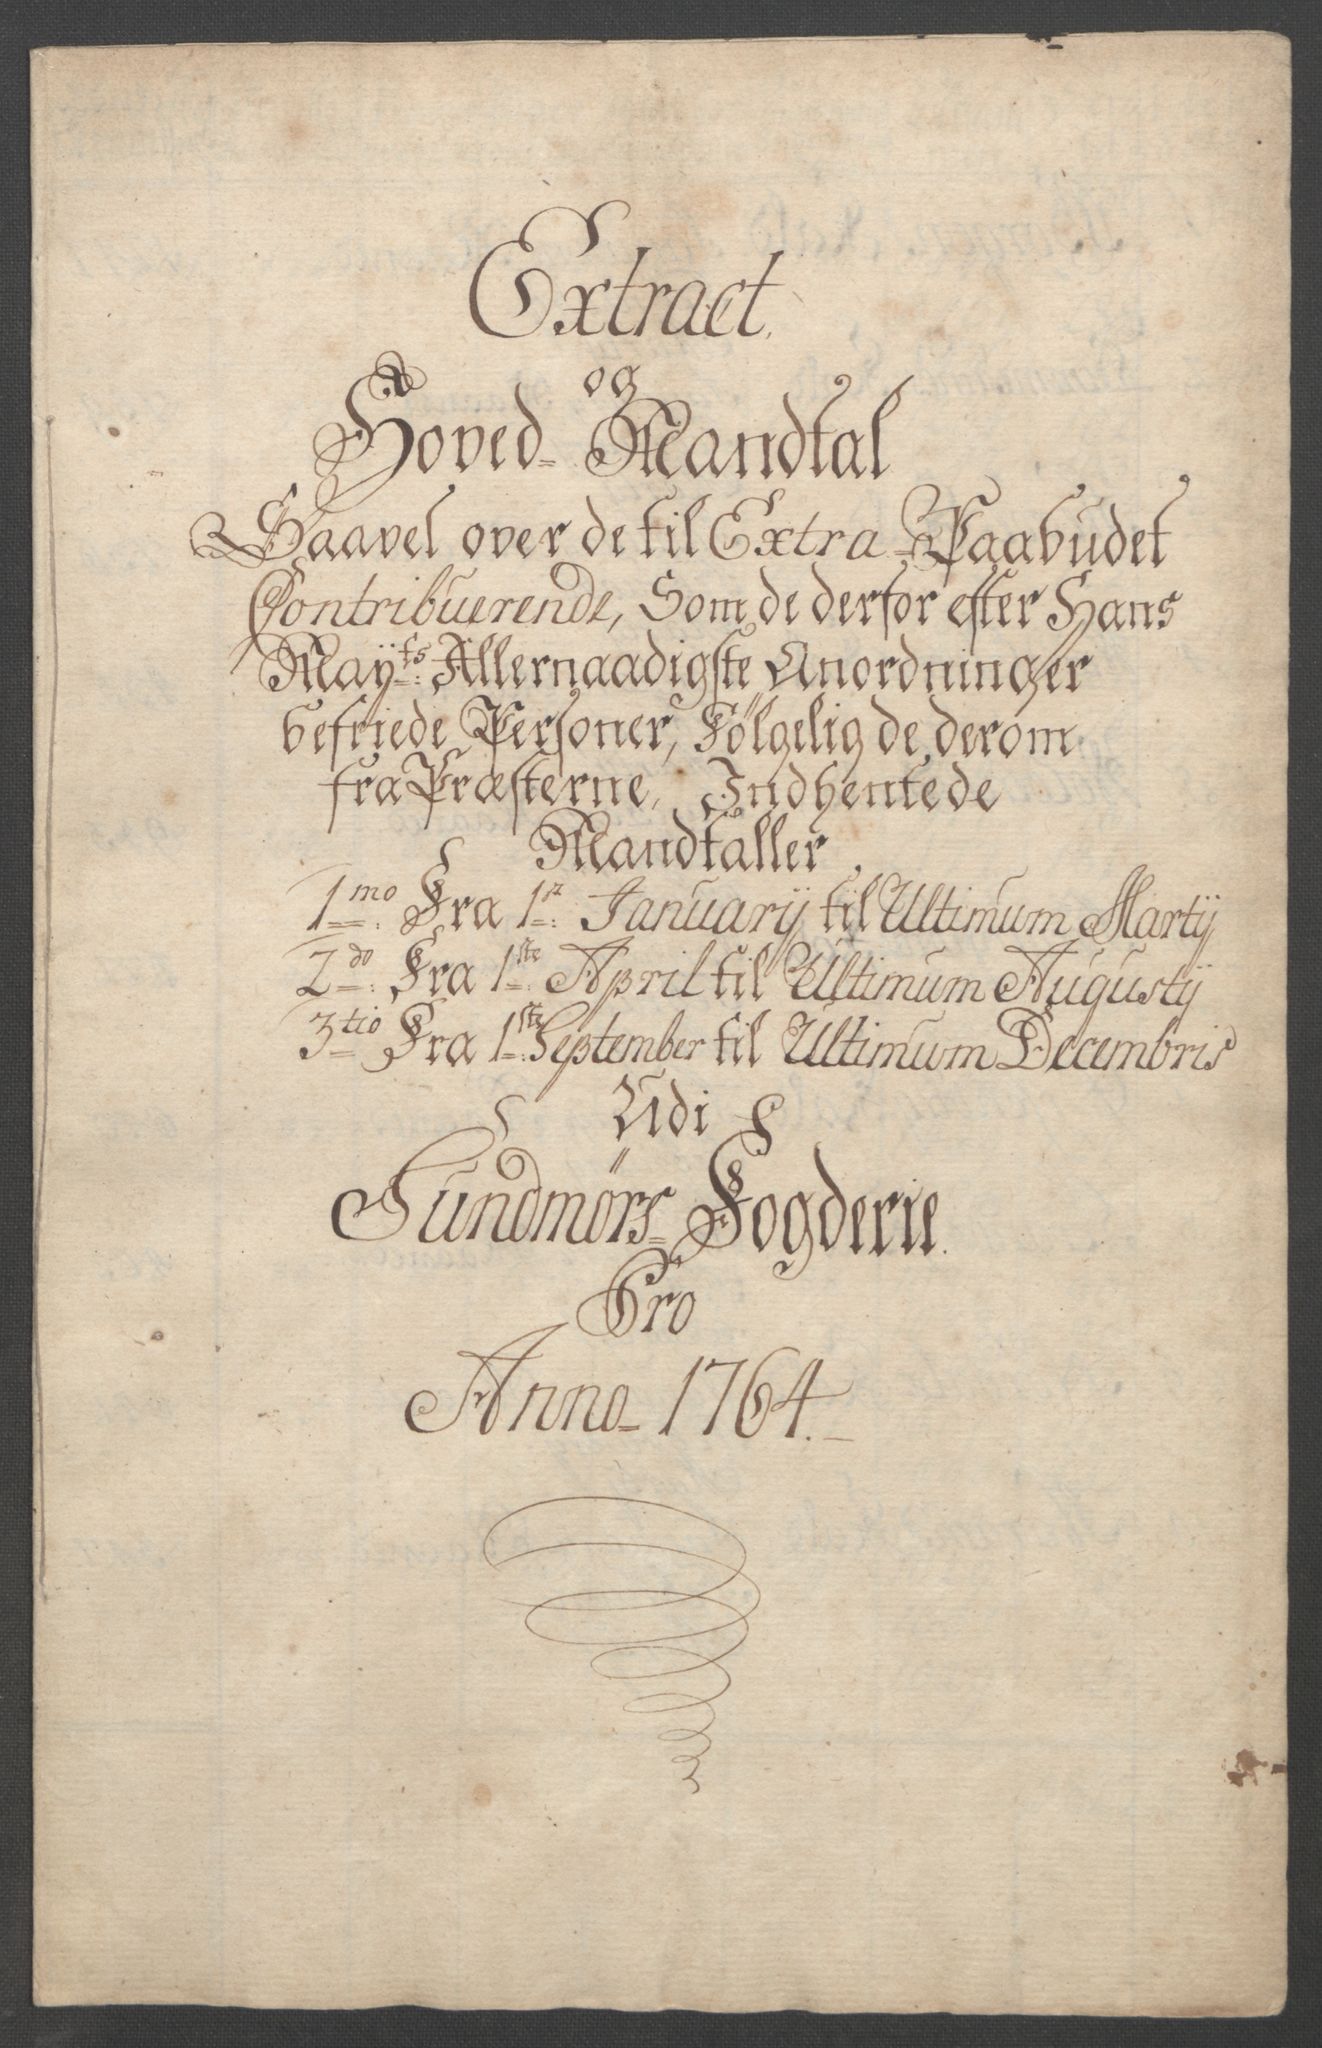 Extract
og
Hoved- Mandtal
Saavel over de til Extra Paabudet
Contribuerende, Som de derfor efter Hans
Mayts: Allernaadigste Anordninger
befriede Personer, Følgelig de derom
fra Præsterne, Indhentede
Mandtaller
1mo: Fra 1st: Januarij til Ultimum Martij
2do: Fra 1ste: April til Ultimum Augustij
3tio Fra 1ste: September til Ultimum Decembris
Udi
Sundmørs- Fogderie.
Pro
Anno- 1764.